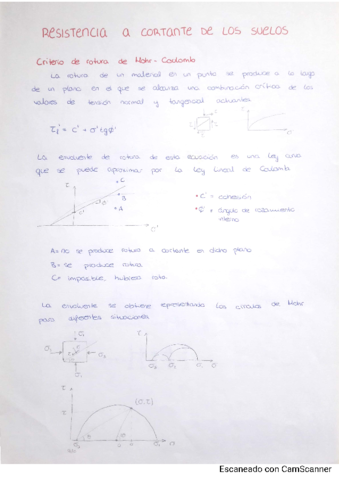 RESISTENCIA A CORTANTE DE LOS SUELOS
Criterio de rotura de Mohr-Coulomb
La rotura de un material en un punto, se produce a lo largo
de un plano en el que se alcanza una combinación crítica de los
valores de tensión normal y tangencial actuantes.
τf' = c' + σ' tgφ'
La envolvente de rotura de esta ecuación es una ley curva
que se puede aproximar por la ley lineal de Coulomb
τ
C
B
A
c'
• c' = cohesión
• φ' = ángulo de rozamiento
interno
A= no se produce rotura a cortante en dicho plano
B= se produce rotura
C= imposible, hubiera roto.
La envolvente se obtiene representando los círculos de Mohr
para diferentes situaciones
τ
σ
(σ, τ)
σ
Escaneado con CamScanner